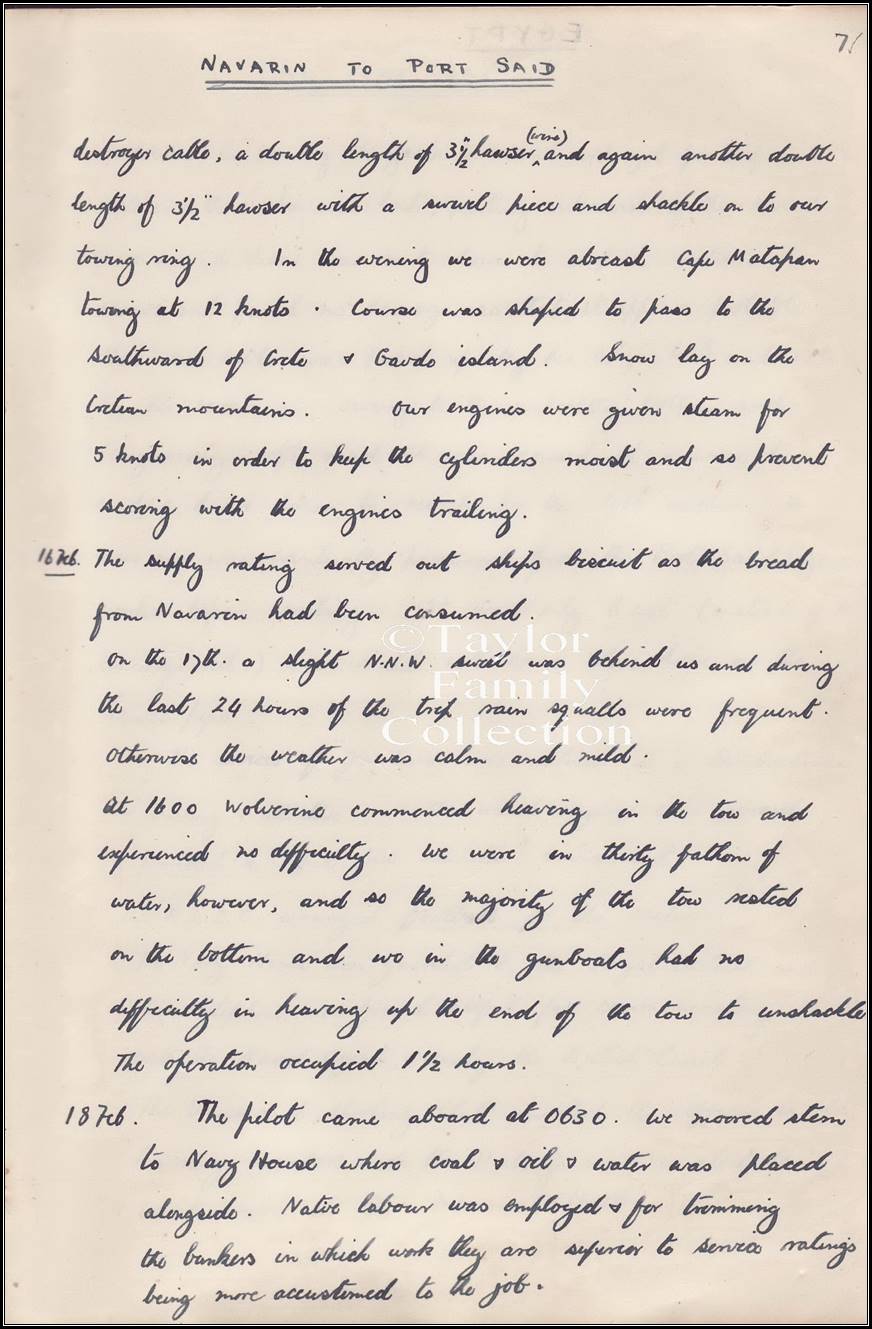 71
NAVARIN TO PORT SAID
destroyer cable, a double length of 3½" hawser, (wire) and again another double
length of 3½" hawser with a swivel piece and shackle on to our
towing ring. In the evening we were abreast Cape Matapan
towing at 12 knots. Course was shaped to pass to the
southward of Crete & Gavdo island. Snow lay on the
Cretian mountains. Our engines were given steam for
5 knots in order to keep the cylinders moist and so prevent
scoring with the engines trailing.
16 Feb. The supply rating served out ships biscuit as the bread
from Navarin had been consumed.
On the 17th. a slight N.N.W. swell was behind us and during
the last 24 hours of the trip rain squalls were frequent.
Otherwise the weather was calm and mild.
At 1600 Wolverine commenced heaving in the tow and
experienced no difficulty. We were in thirty fathom of
water, however, and so the majority of the tow rested
on the bottom and wo in the gunboats had no
difficulty in heaving up the end of the tow to unshackle
The operation occupied 1½ hours.
18 Feb. The pilot came aboard at 0630. We moored stern
to Navy House where coal & oil & water was placed
alongside. Native labour was employed & for trimming
the bunkers in which work they are superior to service ratings
being more accustomed to the job.
©Taylor
Family
Collection